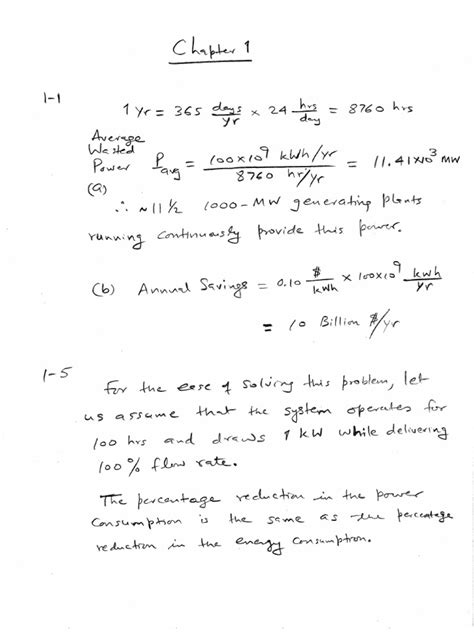 Chapter 1
1-1
1 yr = 365 days/yr × 24 hrs/day = 8760 hrs
Average
Wasted
Power P_avg = 100x10^9 kWh/yr / 8760 hr/yr = 11.41x10^3 MW
(a)
∴ ~11 ½ 1000-MW generating plants
running continuously provide this power.
(b) Annual Savings = 0.10 $/kWh × 100x10^9 kWh/yr
= 10 Billion $/yr
1-5
For the ease of solving this problem, let
us assume that the system operates for
100 hrs and draws 1 kW while delivering
100% flow rate.
The percentage reduction in the power
consumption is the same as the percentage
reduction in the energy consumption.